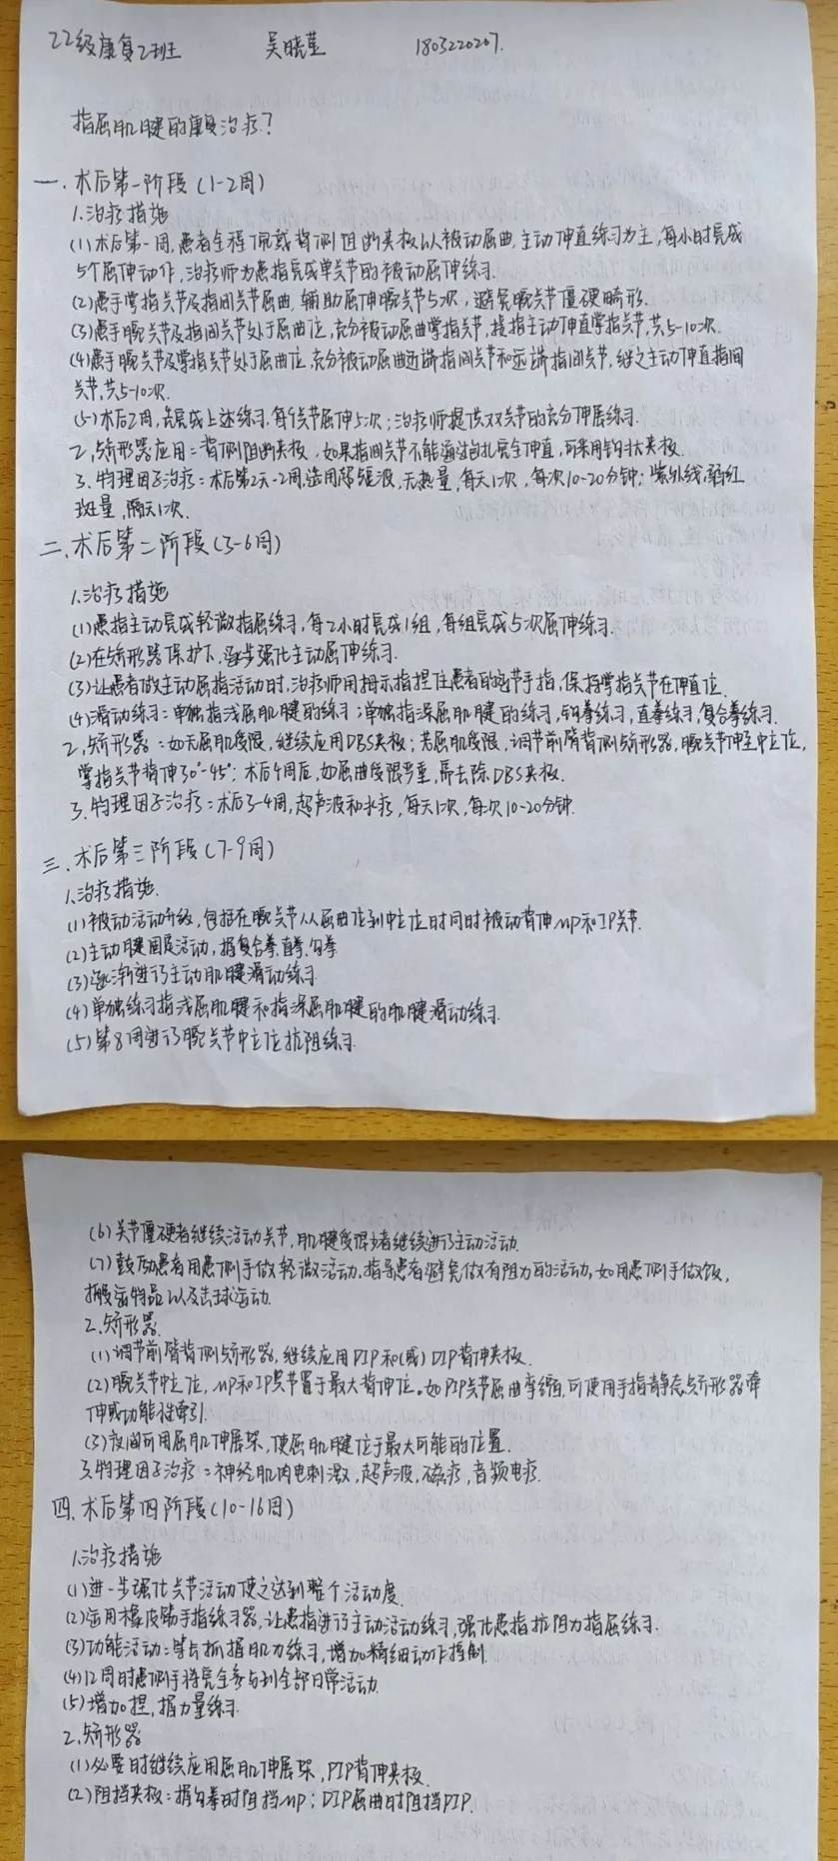 22级康复2班 吴晓莹 1803220207.
指屈肌腱的康复治疗?
一、术后第一阶段(1-2周)
1.治疗措施
(1)术后第一周,患者全程佩戴背侧阻断夹板以被动屈曲,主动伸直练习为主,每小时完成
5个屈伸动作,治疗师为患指完成单关节的被动屈伸练习.
(2)患手掌指关节及指间关节屈曲,辅助屈伸腕关节5次,避免腕关节僵硬畸形.
(3)患手腕关节及指间关节处于屈曲位,充分被动屈曲掌指关节,接指主动伸直掌指关节,共5-10次.
(4)患手腕关节及掌指关节处于屈曲位,充分被动屈曲近端指间关节和远端指间关节,继之主动伸直指间
关节,共5-10次.
(5)术后2周,先完成上述练习,每个关节屈伸5次;治疗师提供双关节的充分伸展练习.
2.矫形器应用:背侧阻断夹板,如果指间关节不能通过包扎完全伸直,可采用钩状夹板.
3.物理因子治疗:术后第2天-2周,选用超短波,无热量,每天1次,每次10-20分钟;紫外线,弱红
斑量,隔天1次.
二、术后第二阶段(3-6周)
1.治疗措施
(1)患指主动完成轻微指屈练习,每2小时完成1组,每组完成5次屈伸练习.
(2)在矫形器保护下,逐步强化主动屈伸练习.
(3)让患者做主动屈指活动时,治疗师用拇示指捏住患者的近节手指,保持掌指关节在伸直位.
(4)滑动练习:单独指浅屈肌腱的练习;单独指深屈肌腱的练习,钩拳练习,直拳练习,复合拳练习.
2.矫形器:如无屈肌受限,继续应用DBS夹板;若屈肌受限,调节前臂背侧矫形器,腕关节伸至中立位,
掌指关节背伸30°-45°;术后4周后,如屈曲受限严重,需去除DBS夹板.
3.物理因子治疗:术后3-4周,超声波和水疗,每天1次,每次10-20分钟.
三、术后第三阶段(7-9周)
1.治疗措施.
(1)被动活动升级,包括在腕关节从屈曲位到中立位时同时被动背伸MP和IP关节.
(2)主动腱固定活动,握复合拳,直拳,勾拳
(3)逐渐进行主动肌腱滑动练习
(4)单独练习指浅屈肌腱和指深屈肌腱的肌腱滑动练习.
(5)第8周进行腕关节中立位抗阻练习.
(6)关节僵硬者继续活动关节,肌腱受限者继续进行主动活动.
(7)鼓励患者用患侧手做轻微活动.指导患者避免做有阻力的活动,如用患侧手做饭,
搬运物品以及击球运动.
2.矫形器.
(1)调节前臂背侧矫形器,继续应用PIP和(或)DIP背伸夹板.
(2)腕关节中立位,MP和IP关节置于最大背伸位。如PIP关节屈曲挛缩,可使用手指静态矫形器牵
伸或功能性牵引.
(3)夜间可用屈肌伸展架,使屈肌腱位于最大可能的位置.
3.物理因子治疗:神经肌肉电刺激,超声波,磁疗,音频电疗.
四、术后第四阶段(10-16周)
1.治疗措施
(1)进一步强化关节活动使之达到整个活动度.
(2)运用橡皮筋手指练习器,让患指进行主动活动练习,强化患指抗阻力指屈练习.
(3)功能活动:与抓握肌力练习,增加精细动作控制.
(4)12周时患侧手将完全参与到全部日常活动.
(5)增加捏,握力量练习.
2.矫形器
(1)必要时继续应用屈肌伸展架,PIP背伸夹板.
(2)阻挡夹板:握勾拳时阻挡MP;DIP屈曲时阻挡PIP.